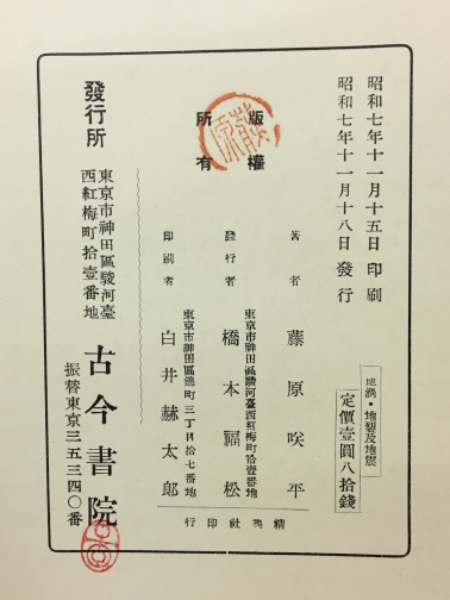 昭和七年十一月十五日 印刷
昭和七年十一月十八日 發行
地渦・地裂及地震
定價壹圓八拾錢
版權
所有
著者 藤原咲平
東京市神田區駿河臺西紅梅町拾壹番地
發行者 橋本福松
東京市神田區錦町三丁目拾七番地
印刷者 白井赫太郎
精興社印行
發行所
東京市神田區駿河臺
西紅梅町拾壹番地
古今書院
振替東京三五三四〇番